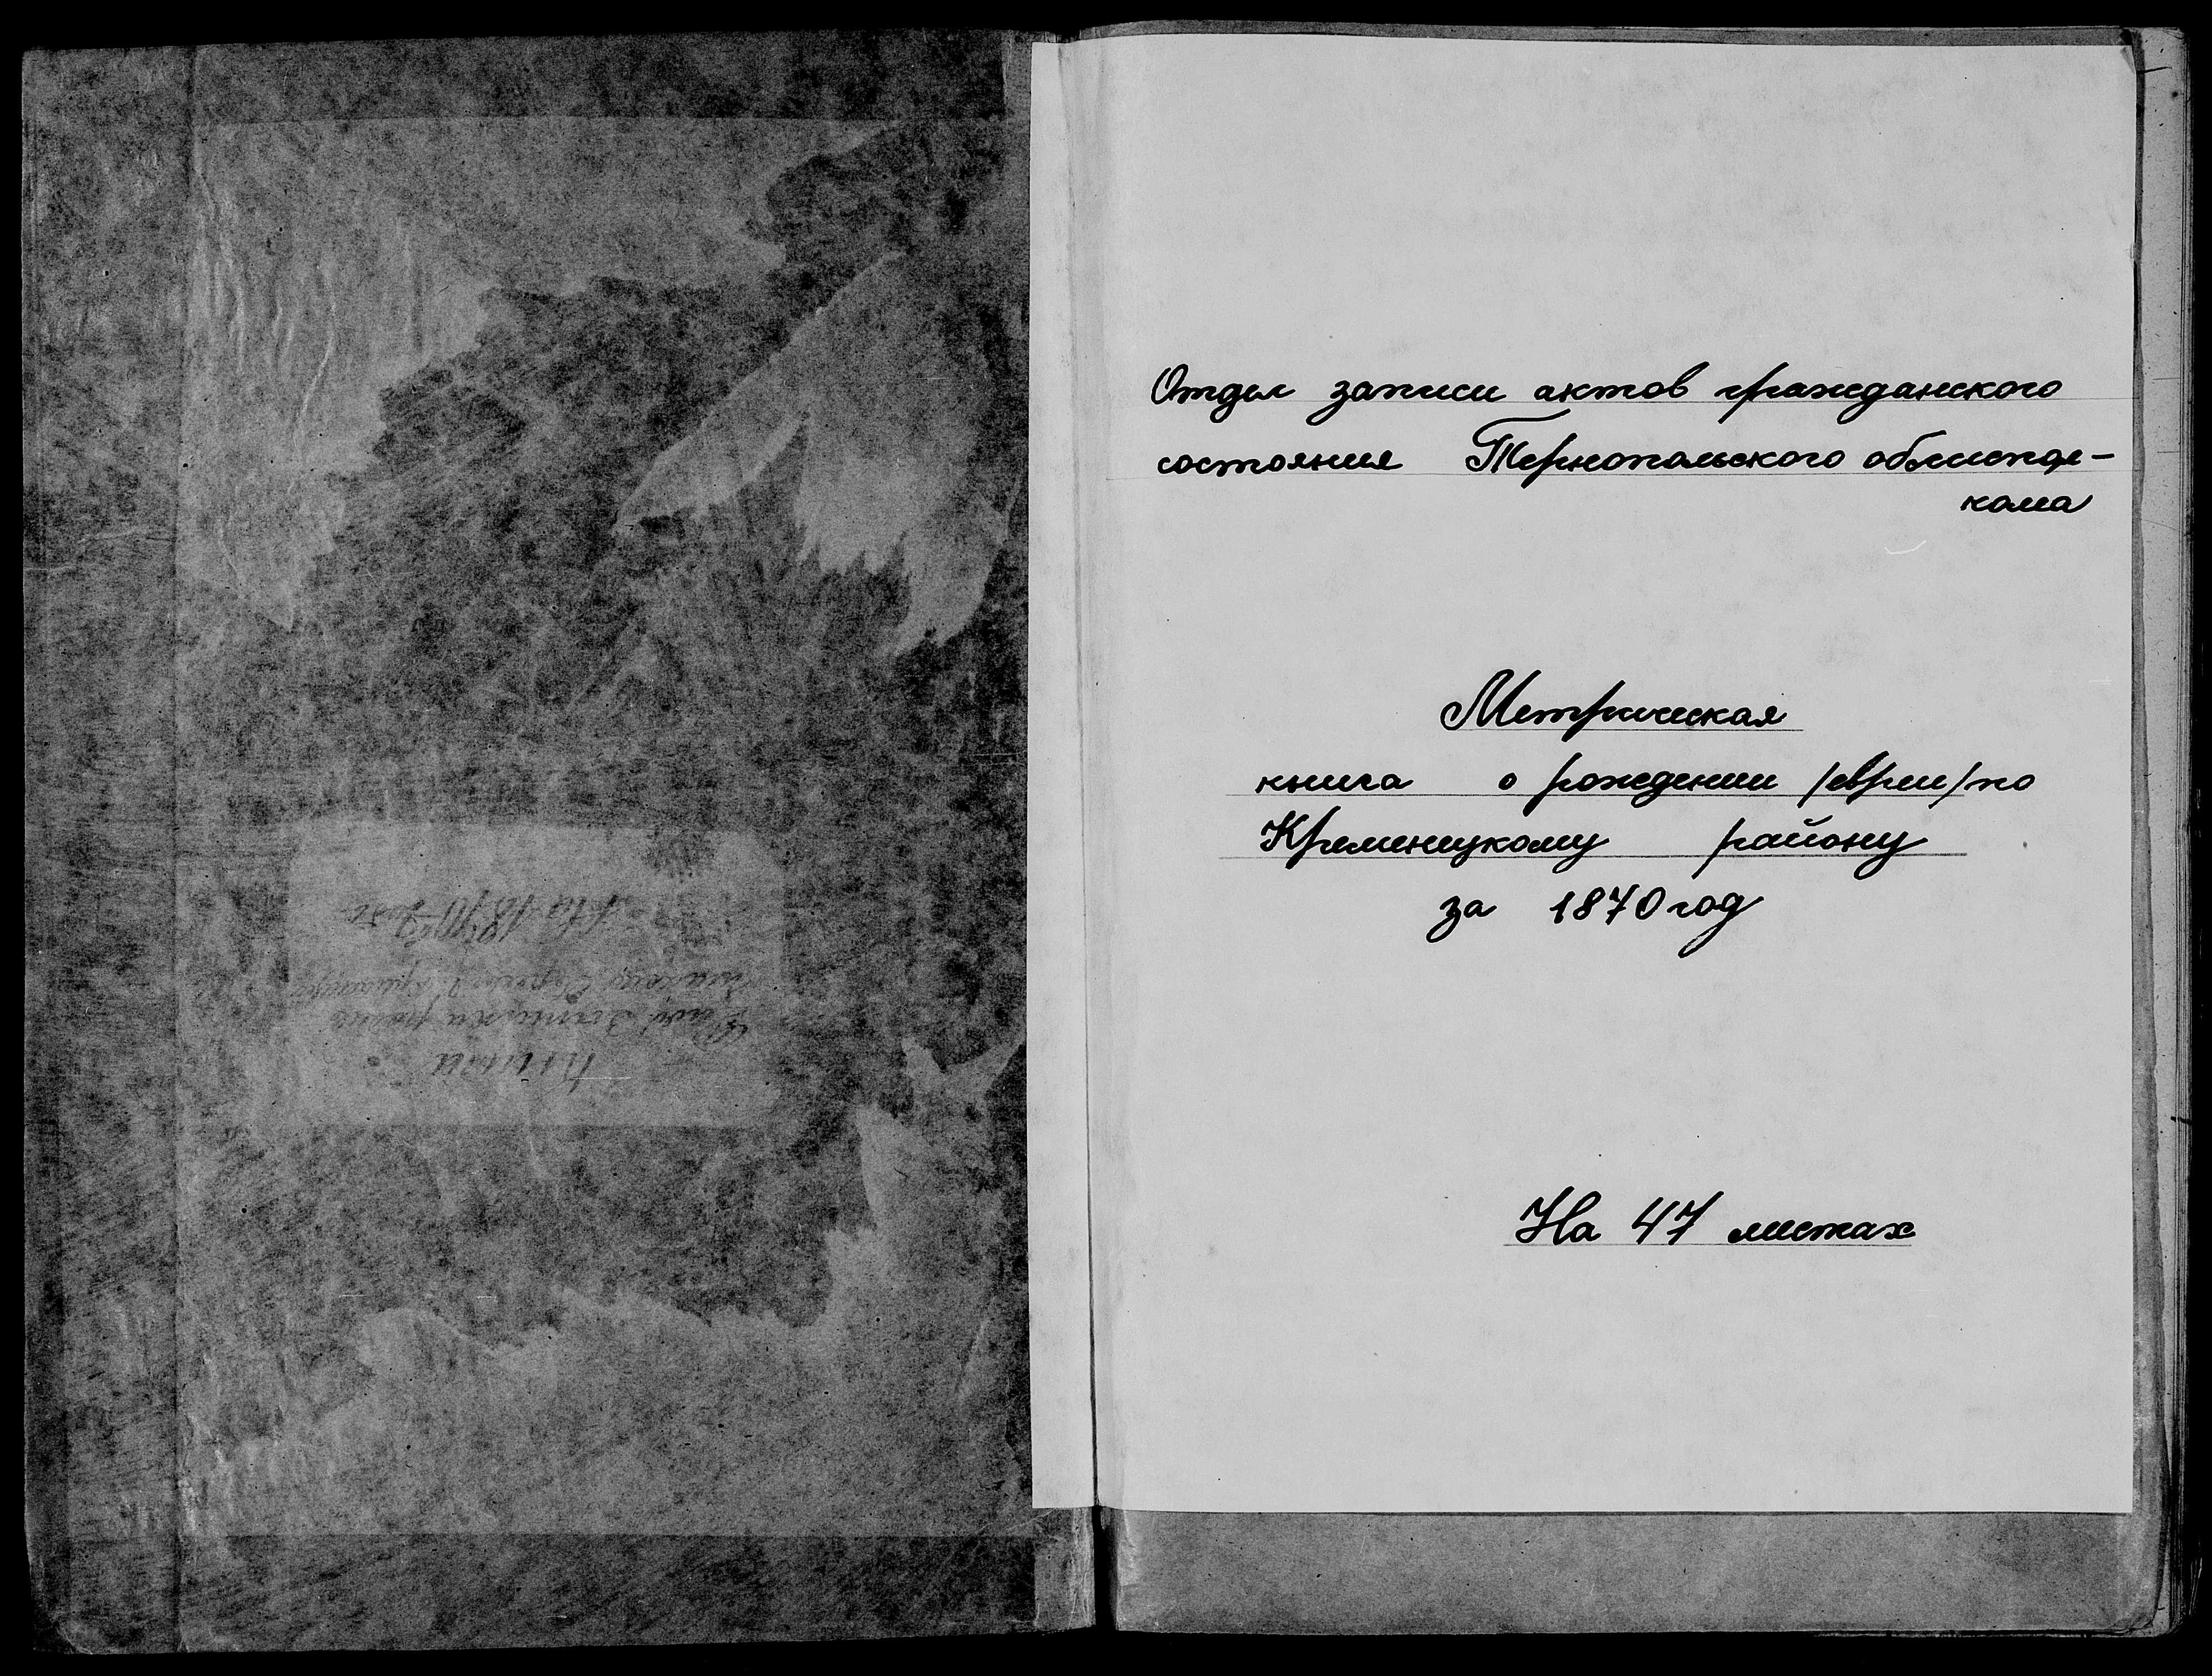 Отдел записи актов гражданского
состояния Тернопольского облиспол-
кома
Метрическая
книга о рождении /евреи/ по
Кременецкому району
за 1870 год
На 47 листах
Книга